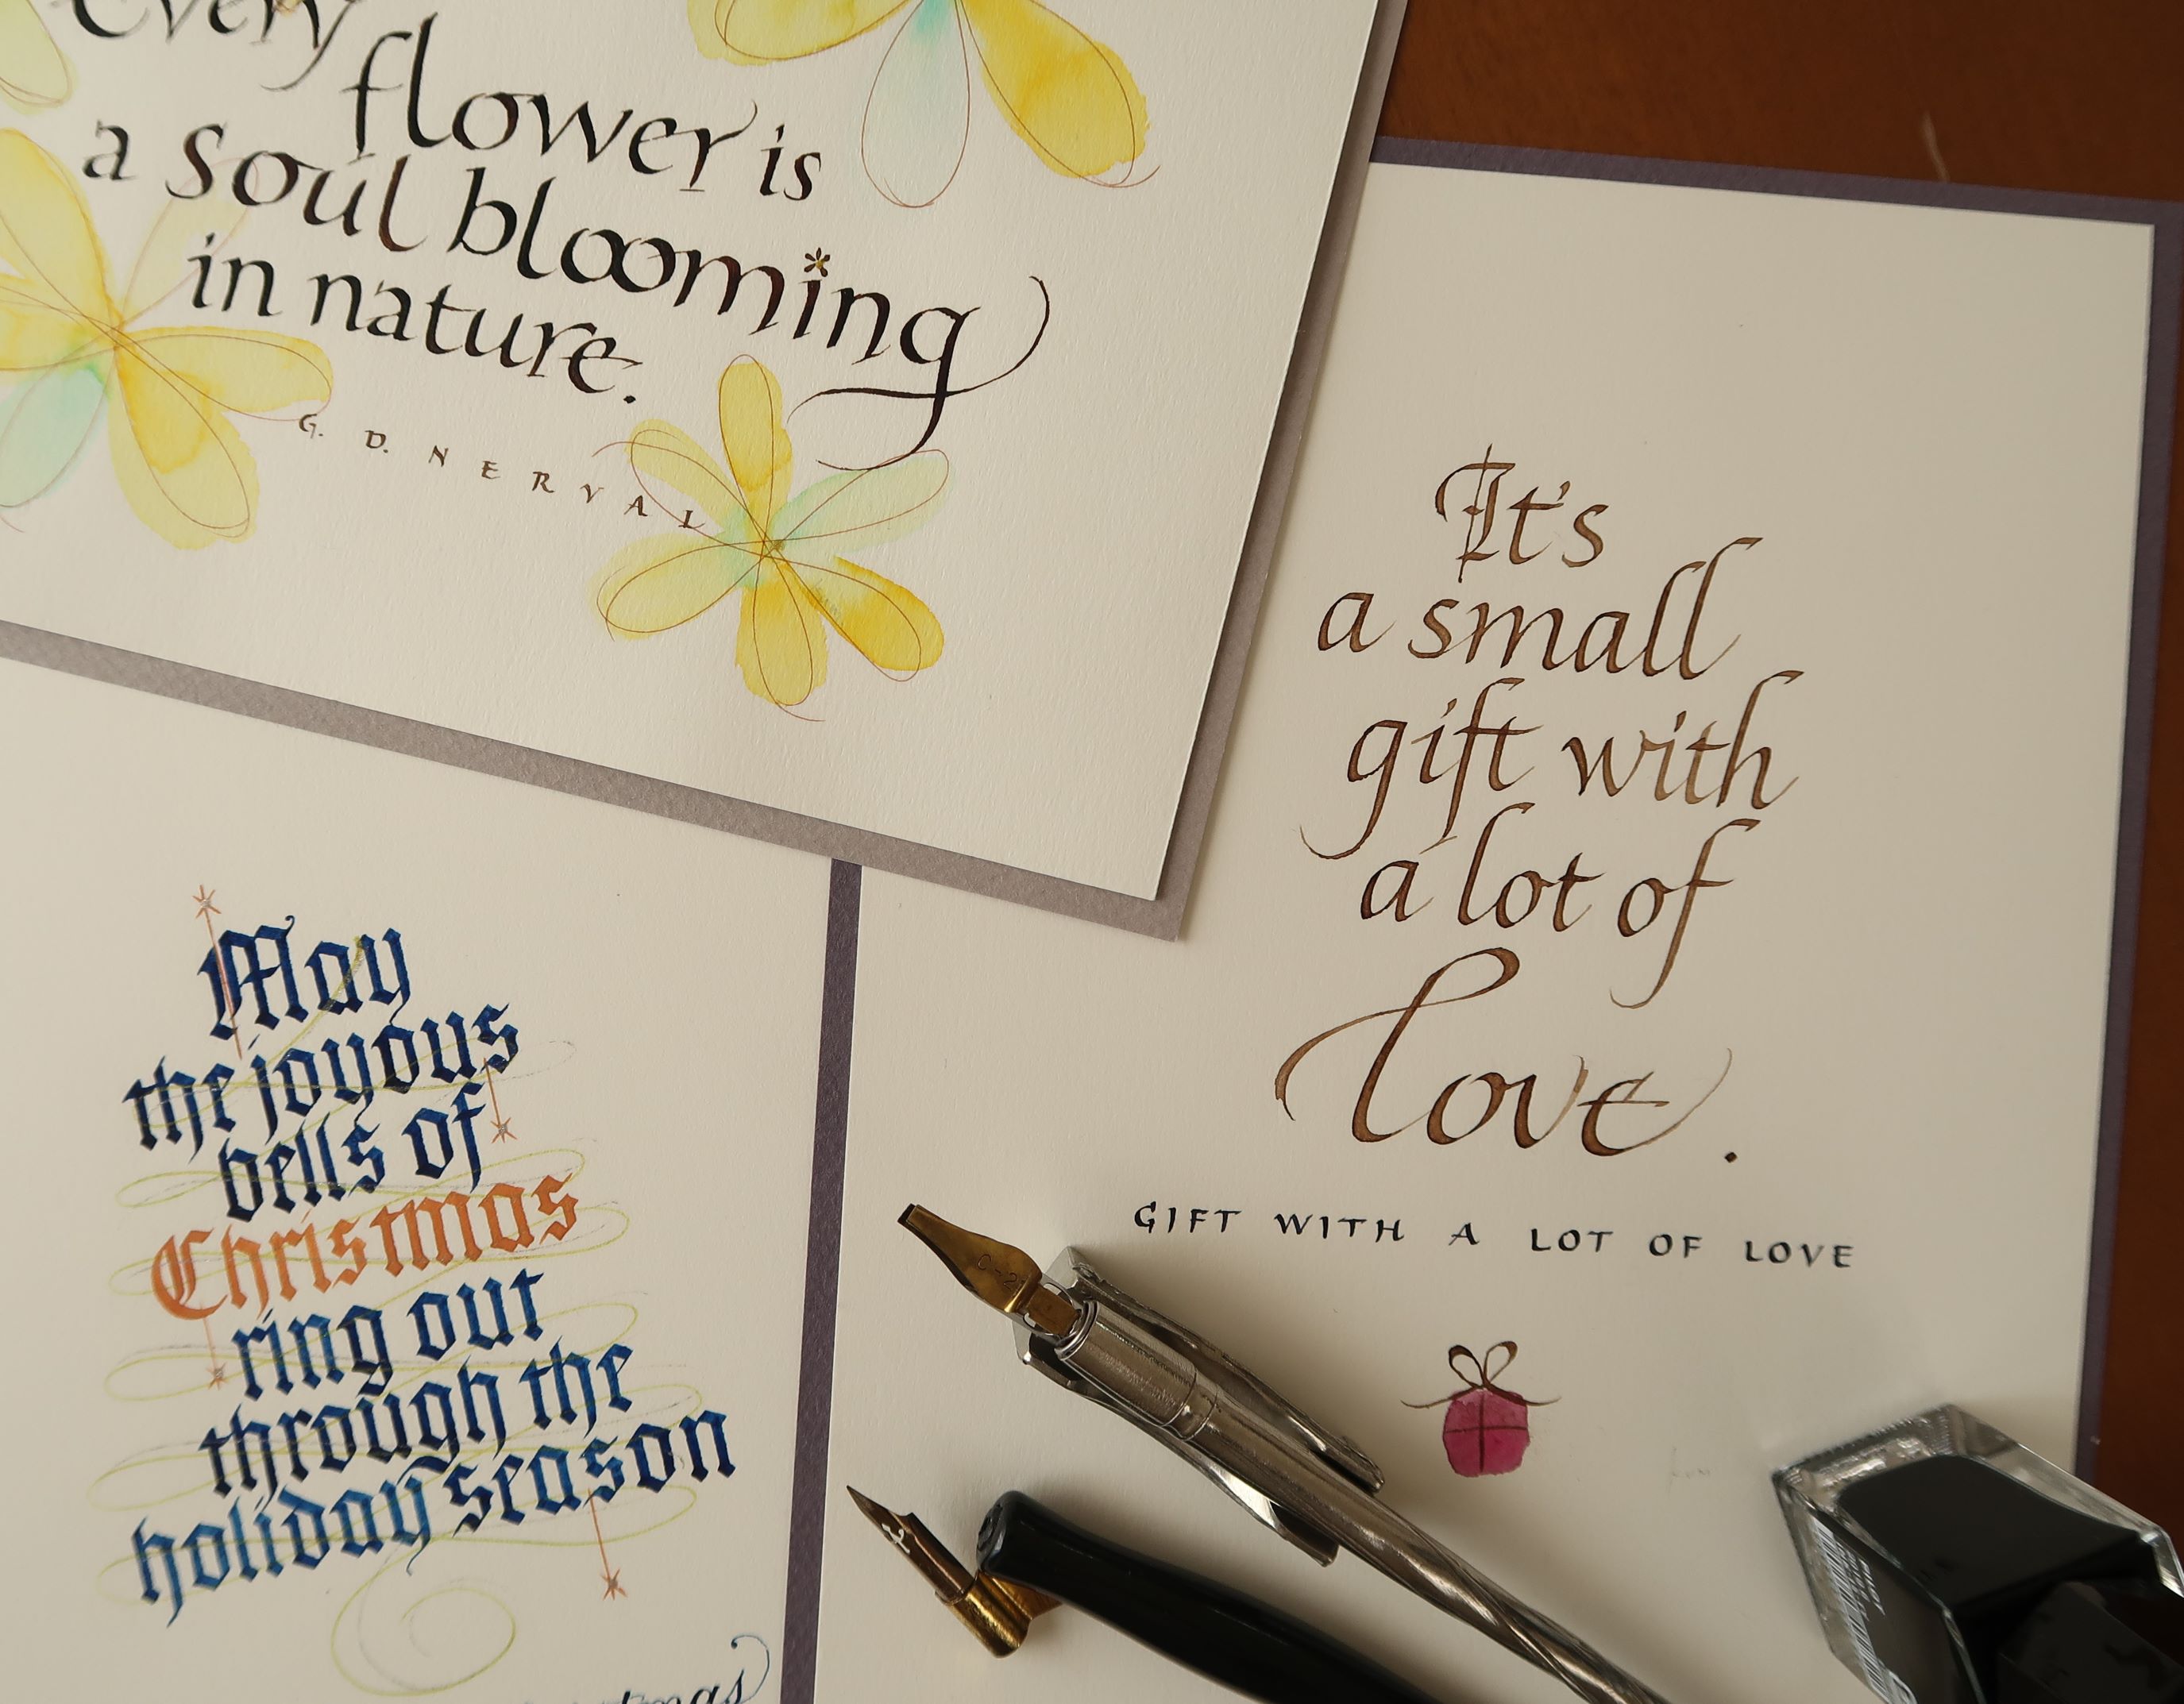 Every
flower is
a soul blooming
in nature.
G. D. NERVAL
It's
a small
gift with
a lot of
love.
GIFT WITH A LOT OF LOVE
May
the joyous
bells of
Christmas
ring out
through the
holiday season